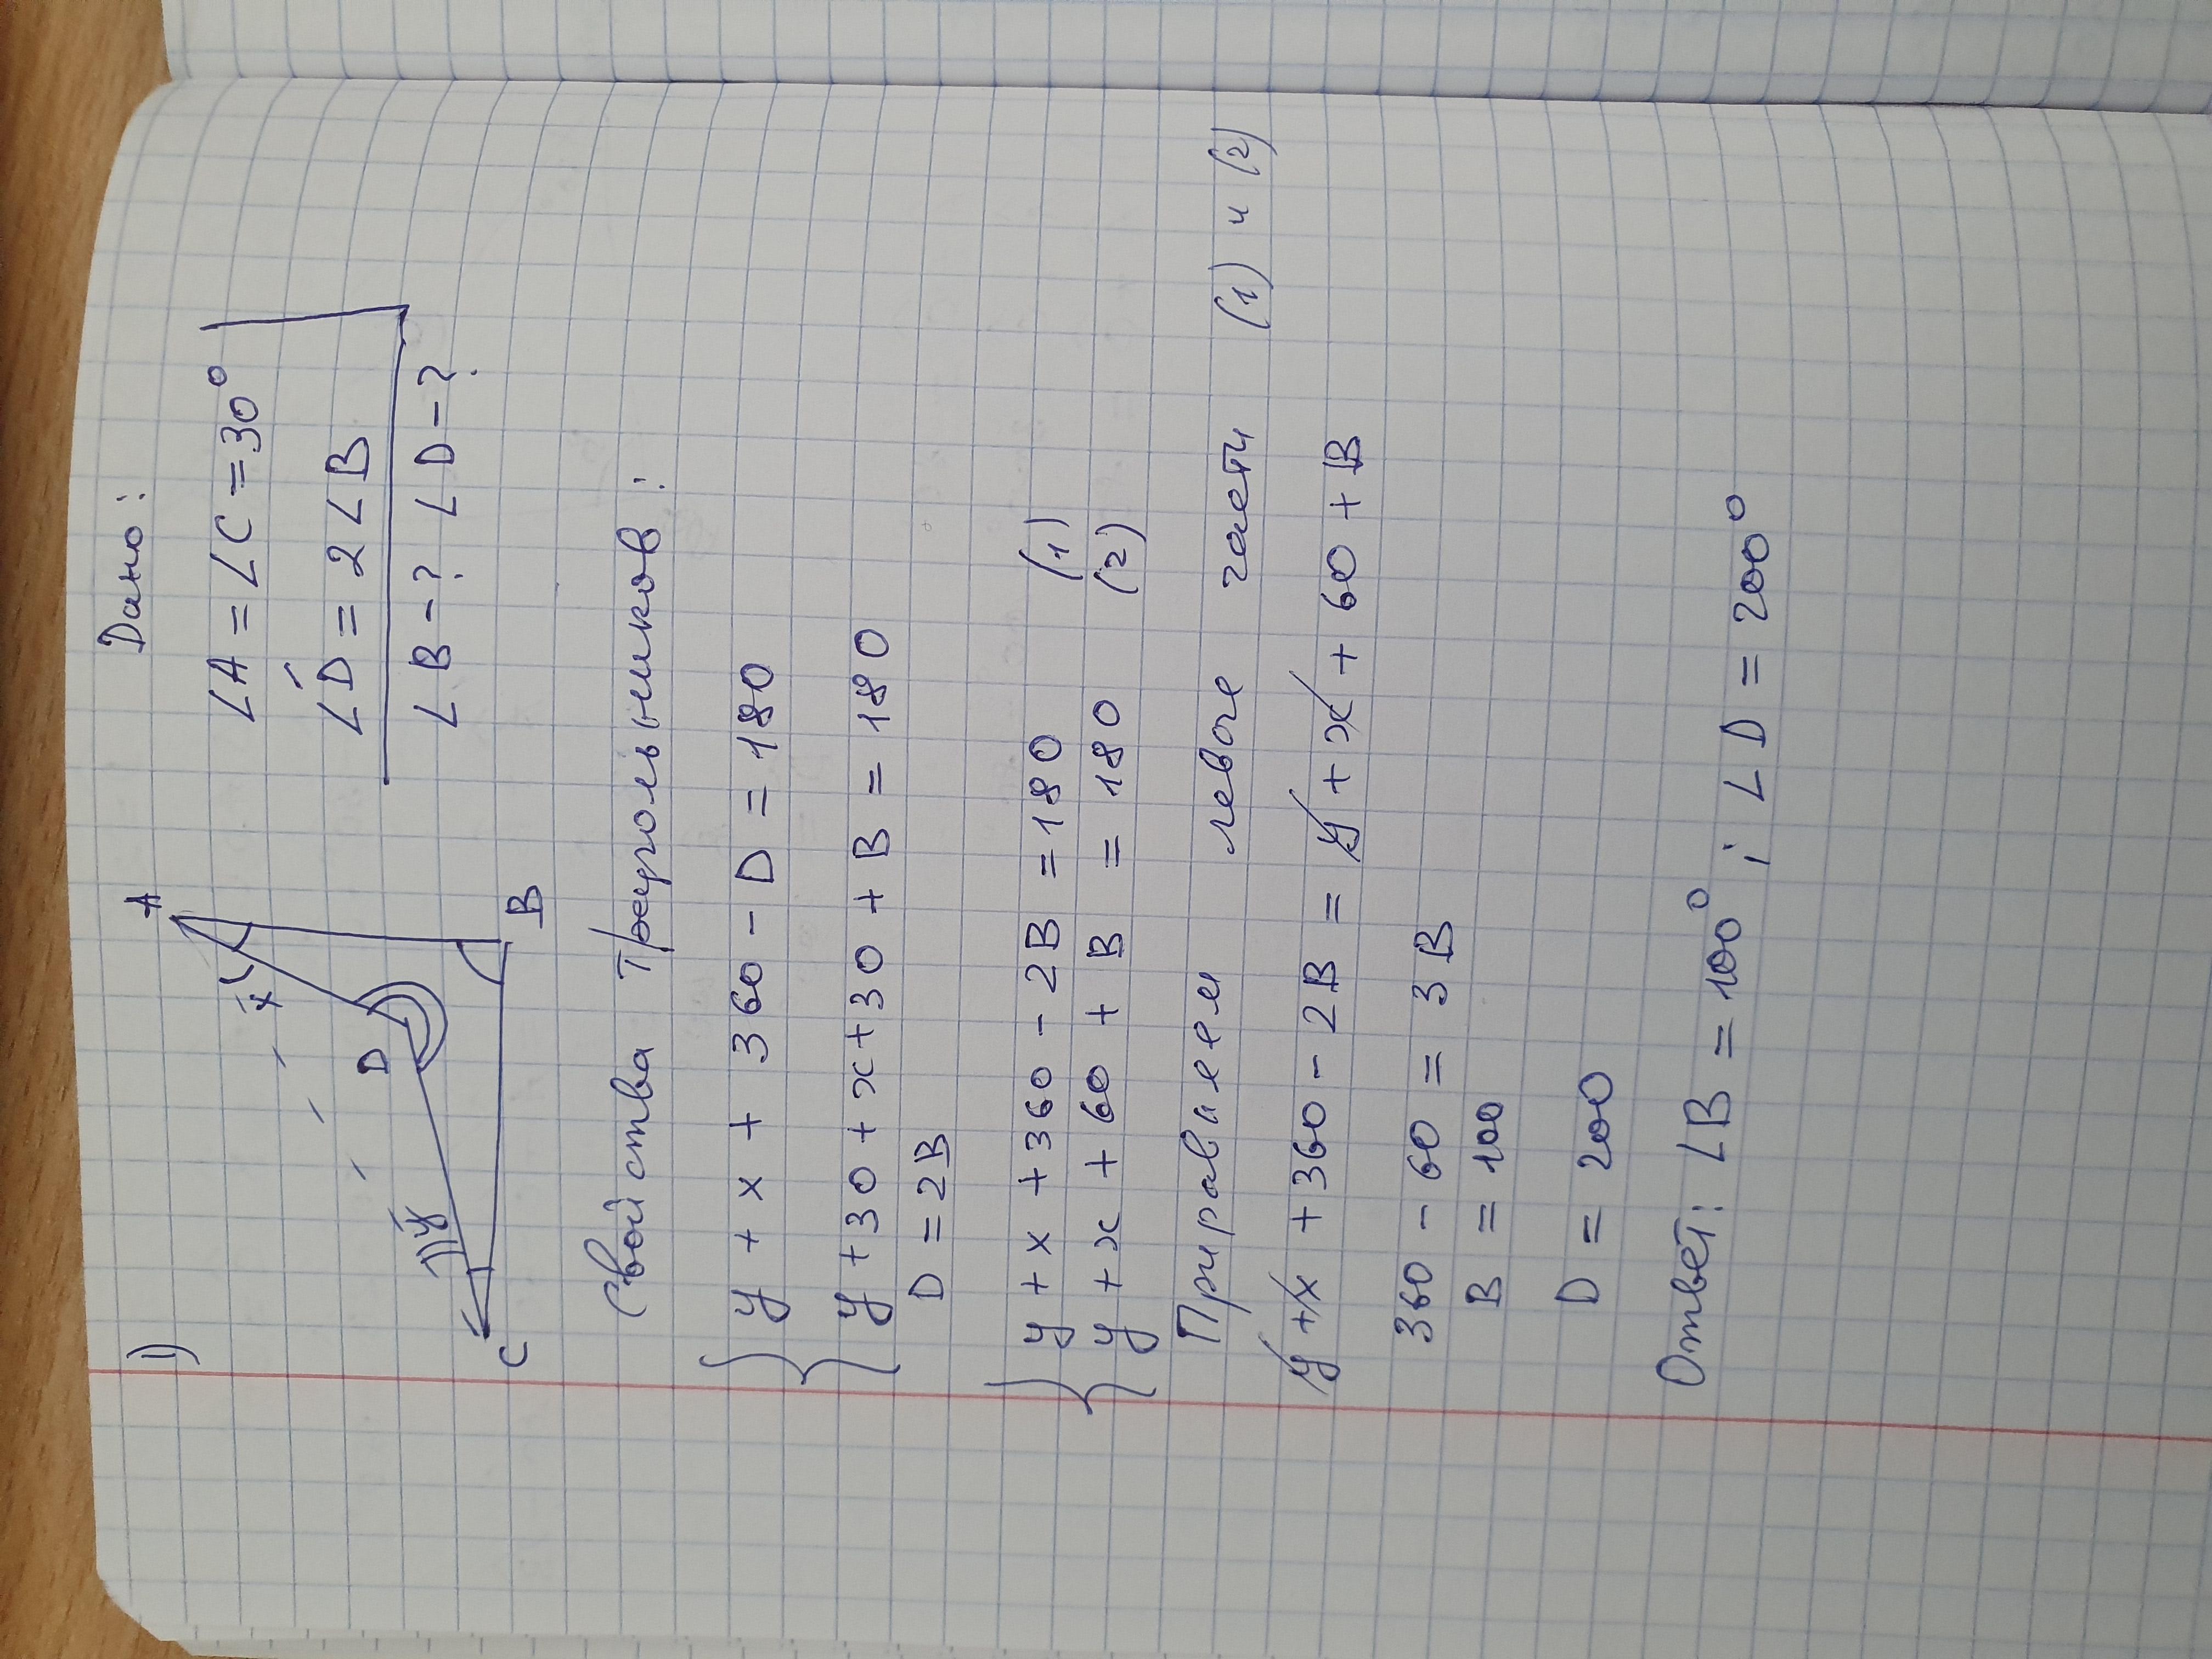 1)
A
x
D
y
C
B
Дано:
∠A = ∠C = 30°
∠D = 2∠B
∠B - ? ∠D - ?
Свойства треугольников:
y + x + 360 - D = 180
y + 30 + x + 30 + B = 180
D = 2B
y + x + 360 - 2B = 180 (1)
y + x + 60 + B = 180 (2)
Приравляем левые части (1) и (2)
y + x + 360 - 2B = y + x + 60 + B
360 - 60 = 3B
B = 100
D = 200
Ответ: ∠B = 100°; ∠D = 200°